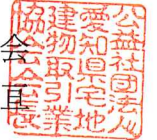 公益社団法人
愛知県宅地
建物取引業
協会会長
会